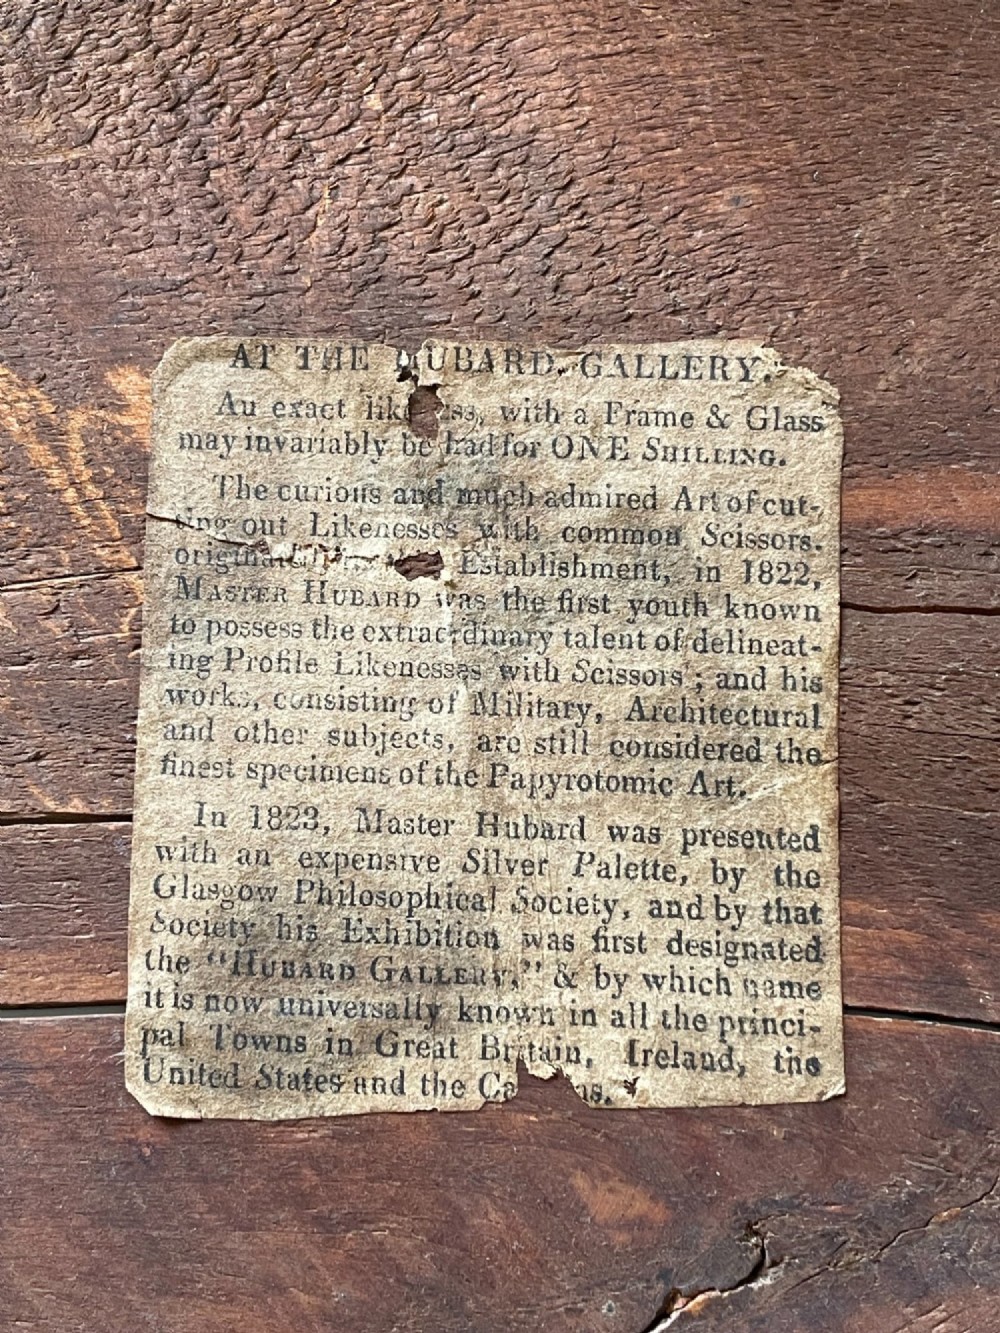 AT THE HUBARD GALLERY.
An exact likeness, with a Frame & Glass
may invariably be had for ONE SHILLING.
The curious and much admired Art of cut-
ting out Likenesses with common Scissors.
Establishment, in 1822,
MASTER HUBARD was the first youth known
to possess the extraordinary talent of delineat-
ing Profile Likenesses with Scissors ; and his
works, consisting of Military, Architectural
and other subjects, are still considered the
finest specimens of the Papyrotomic Art.
In 1823, Master Hubard was presented
with an expensive Silver Palette, by the
Glasgow Philosophical Society, and by that
Society his Exhibition was first designated
the "HUBARD GALLERY," & by which name
it is now universally known in all the princi-
pal Towns in Great Britain, Ireland, the
United States and the